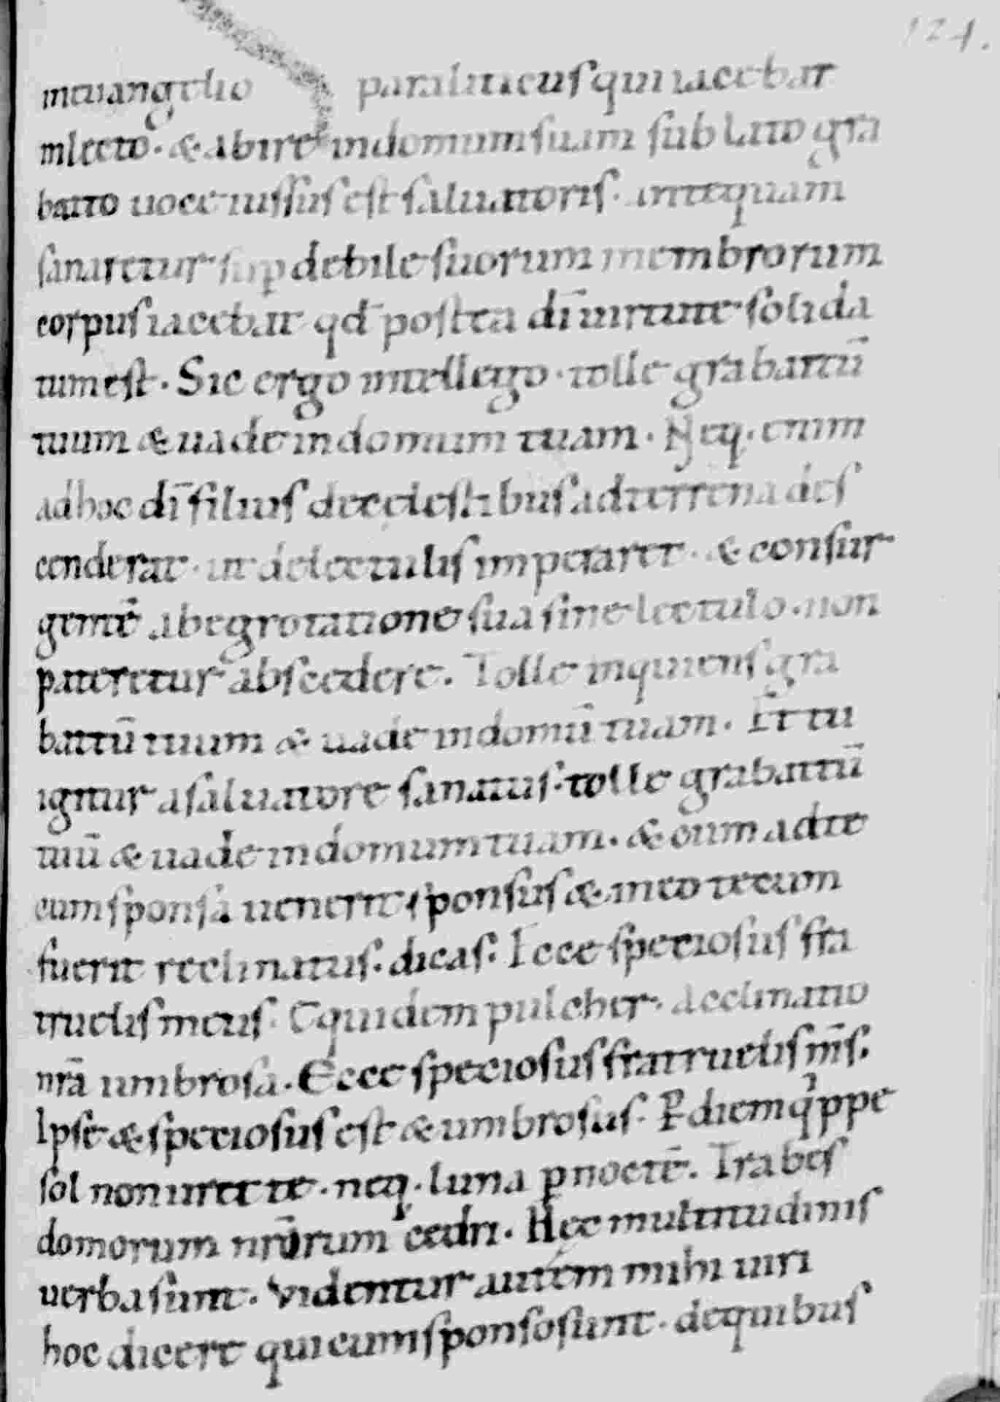 124.
ineuangelio paraliticus qui iacebat
inlecto. & abire indomum suam sublato gra
batto uoce iussus est saluatoris. antequam
sanaretur sup debile suorum membrorum
corpus iacebat qd̄ postea dī uirtute solida
tum est. Sic ergo intellego. tolle grabattū
tuum & uade indomum tuam. Neq. enim
ad hoc dī filius decelestibus adterrena des
cenderat. ut delectulis imperaret. & consur
gentē abegrotatione sua sine lectulo. non
pateretur abscedere. Tolle inquiens gra
battū tuum & uade indomū tuam. Et tu
igitur asaluatore sanatus. tolle grabattū
tuū & uade indomum tuam. & cum adte
cum sponsa uenerit sponsus &. ineo tecum
fuerit reclinatus. dicas. Ecce speciosus fra
truelis meus. Equidem pulcher. acclinatio
nrā umbrosa. Ecce speciosus fratruelis m̄s.
Ipse & speciosus est & umbrosus. P diem qppe
sol non uret te. neq. luna p noctē. Trabes
domorum nr̄orum cedri. Hęc multitudinis
uerba sunt. Videntur autem mihi uiri
hoc dicere qui cum sponso sunt. dequibus